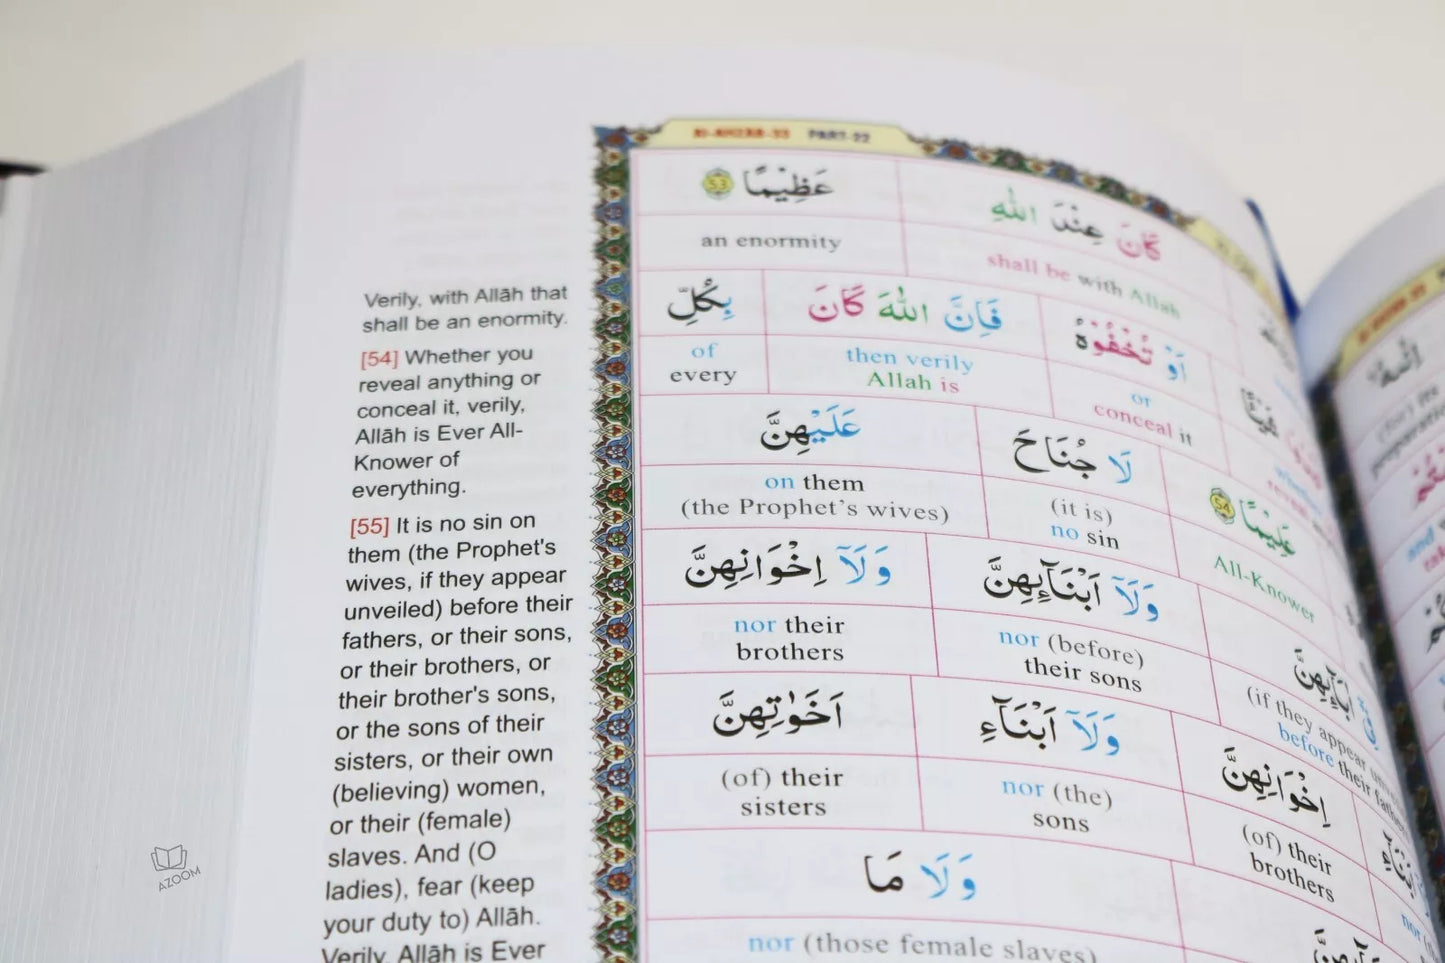 Al-Ahzab-33 PART-22
Verily, with Allāh that
shall be an enormity.
[54] Whether you
reveal anything or
conceal it, verily,
Allāh is Ever All-
Knower of
everything.
[55] It is no sin on
them (the Prophet's
wives, if they appear
unveiled) before their
fathers, or their sons,
or their brothers, or
their brother's sons,
or the sons of their
sisters, or their own
(believing) women,
or their (female)
slaves. And (O
ladies), fear (keep
your duty to) Allāh.
Verily, Allāh is Ever
كَانَ عِنْدَ اللّٰهِ عَظِيْمًا 53
shall be with Allah
an enormity
اَوْ تُخْفُوْهُ فَاِنَّ اللّٰهَ كَانَ بِكُلِّ
or
conceal it
then verily
Allah is
of
every
عَلِيْمًا 54 لَا جُنَاحَ عَلَيْهِنَّ
All-Knower
(it is)
no sin
on them
(the Prophet's wives)
اٰبَآىِٕهِنَّ وَلَاۤ اَبْنَآىِٕهِنَّ وَلَاۤ اِخْوَانِهِنَّ
(if they appear
before their
nor (before)
their sons
nor their
brothers
اِخْوَانِهِنَّ وَلَاۤ اَبْنَآءِ اَخَوٰتِهِنَّ
(of) their
brothers
nor (the)
sons
(of) their
sisters
وَلَا مَا
nor (those female slaves)
AZOOM